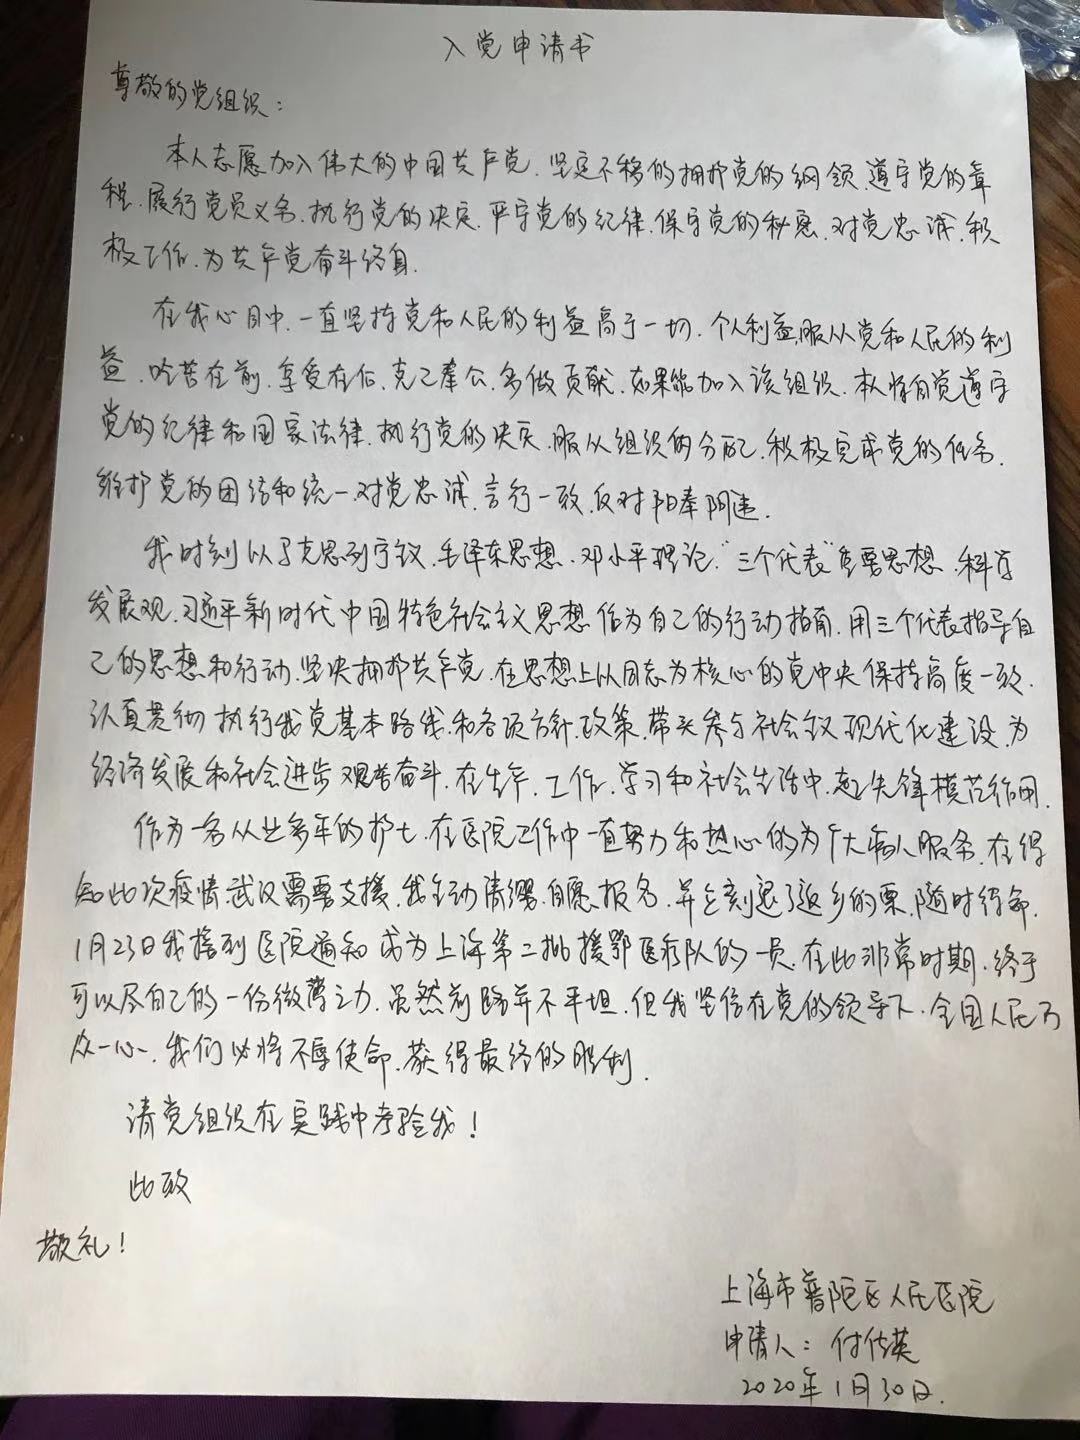 入党申请书
尊敬的党组织：
本人志愿加入伟大的中国共产党.坚定不移的拥护党的纲领.遵守党的章
程.履行党员义务.执行党的决定.严守党的纪律.保守党的秘密.对党忠诚.积
极工作.为共产党奋斗终身.
在我心目中.一直坚持党和人民的利益高于一切.个人利益服从党和人民的利
益.吃苦在前.享受在后.克己奉公.多做贡献.如果能加入该组织.本人将自觉遵守
党的纪律和国家法律.执行党的决定.服从组织的分配.积极完成党的任务.
维护党的团结和统一.对党忠诚.言行一致.反对阳奉阴违.
我时刻以马克思列宁议.毛泽东思想.邓小平理论."三个代表"重要思想.科学
发展观.习近平新时代中国特色社会主义思想作为自己的行动指南.用三个代表指导自
己的思想和行动.坚决拥护共产党.在思想上以同志为核心的党中央保持高度一致.
认真贯彻执行我党基本路线和各项方针.政策.带头参与社会议现代化建设.为
经济发展和社会进步艰苦奋斗.在生产.工作.学习和社会生活中.起先锋模范作用.
作为一名从业多年的护士.在医院工作中一直努力和热心的为广大病人服务.在得
知此次疫情武汉需要支援.我主动请缨.自愿报名.并立刻退了返乡的票.随时待命.
1月23日我接到医院通知成为上海第二批援鄂医疗队的一员.在此非常时期.终于
可以尽自己的一份微薄之力.虽然前路并不平坦.但我坚信在党的领导下.全国人民万
众一心.我们必将不辱使命.获得最终的胜利.
请党组织在实践中考验我！
此致
敬礼！
上海市普陀区人民医院
申请人：付佐英
2020年1月30日.